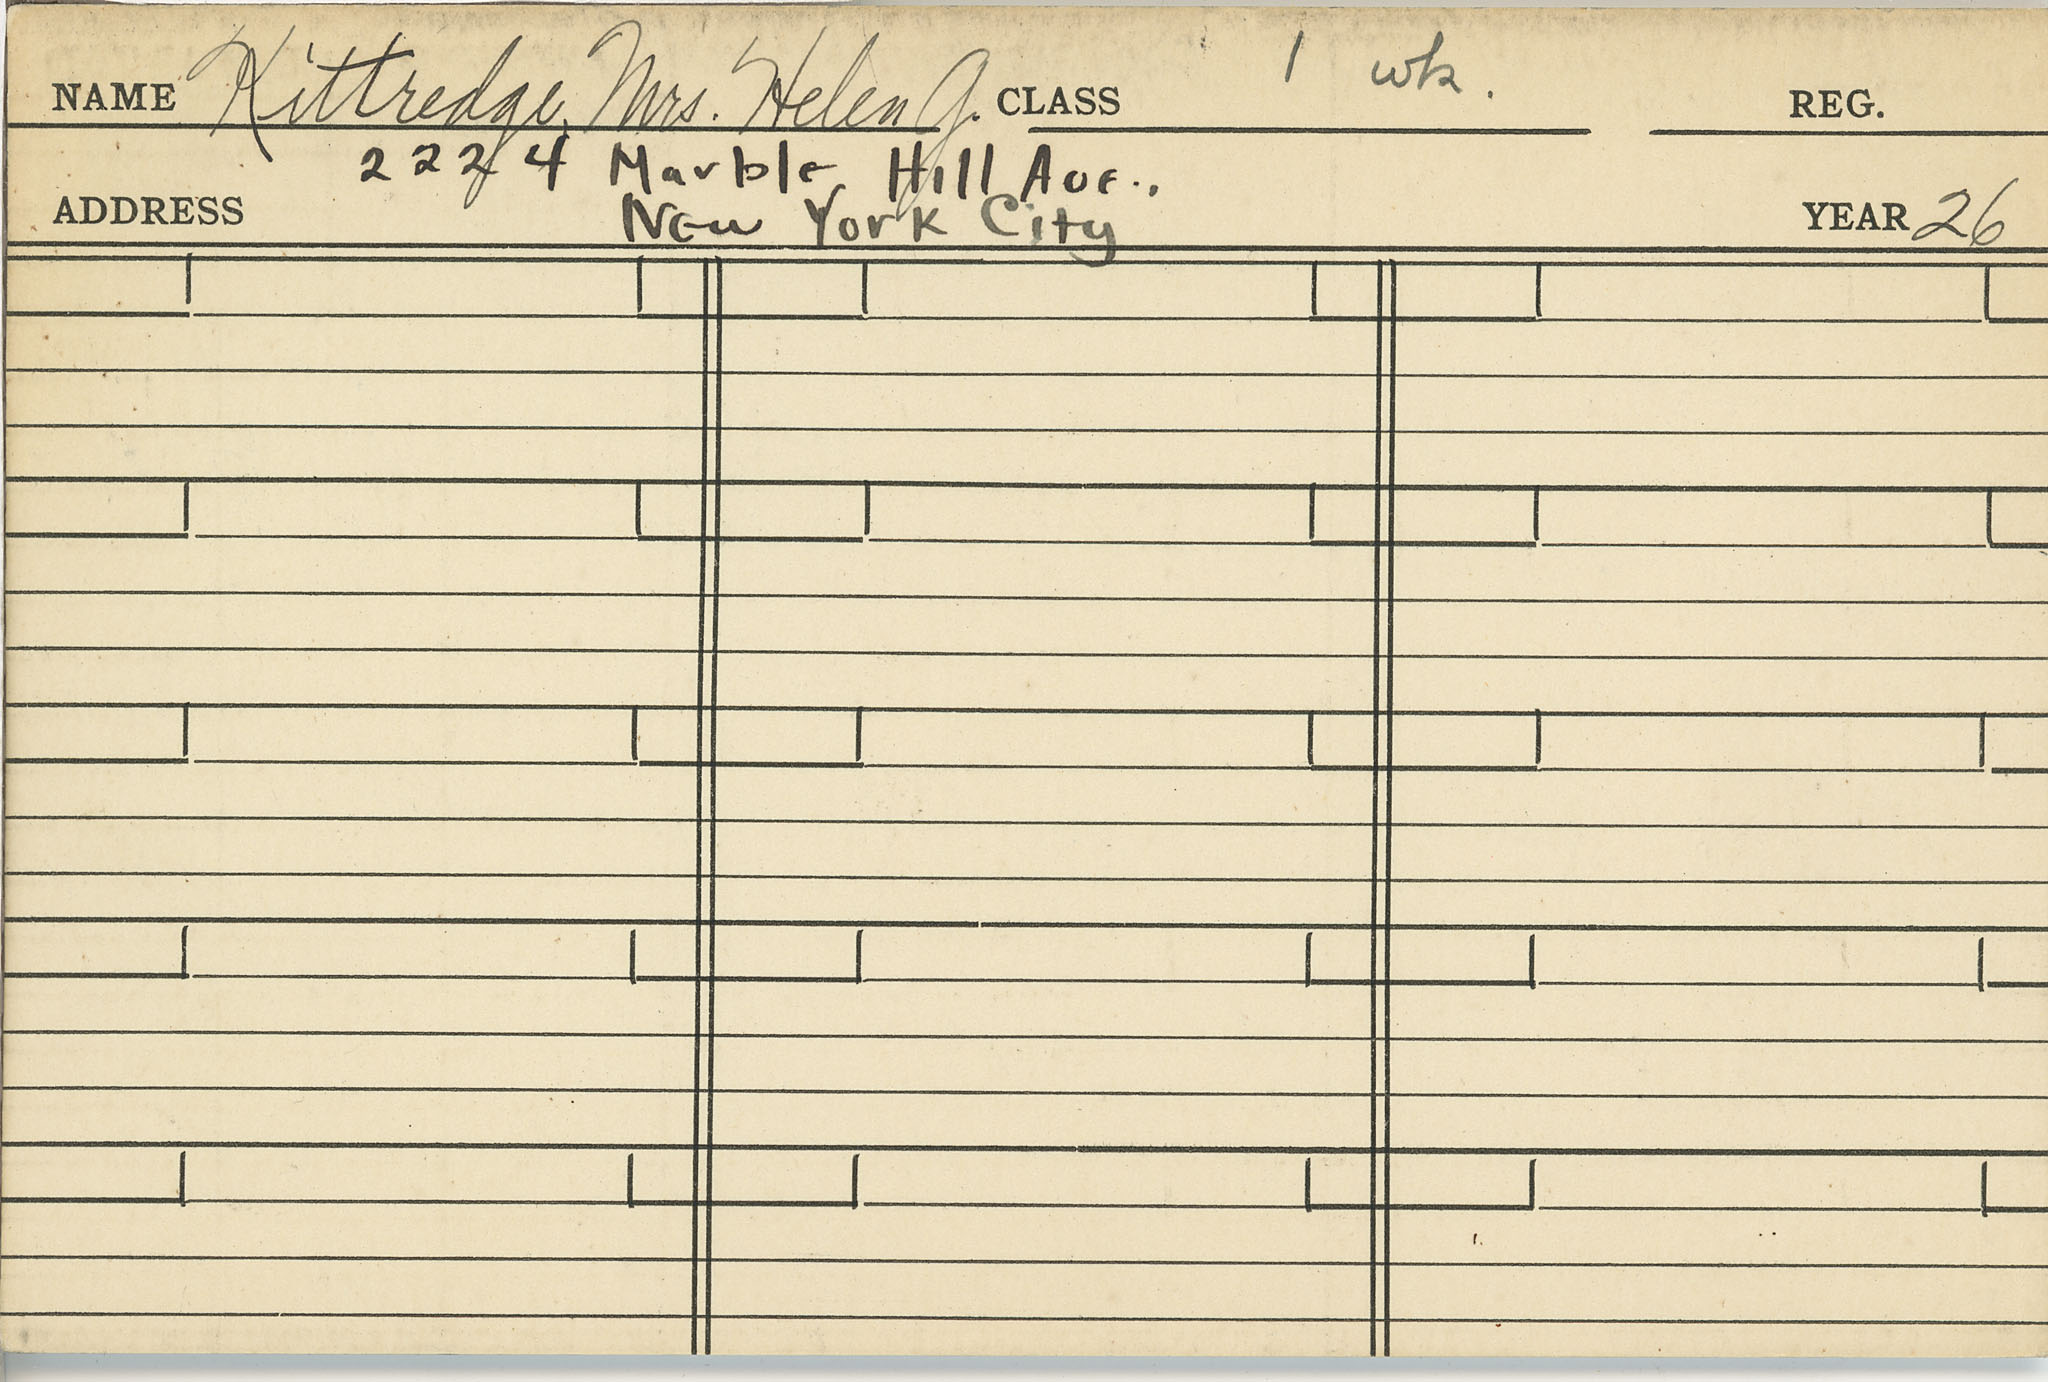 NAME Kittredge, Mrs. Helen G. CLASS 1 wk. REG.
2224 Marble Hill Ave.
ADDRESS New York City YEAR 26